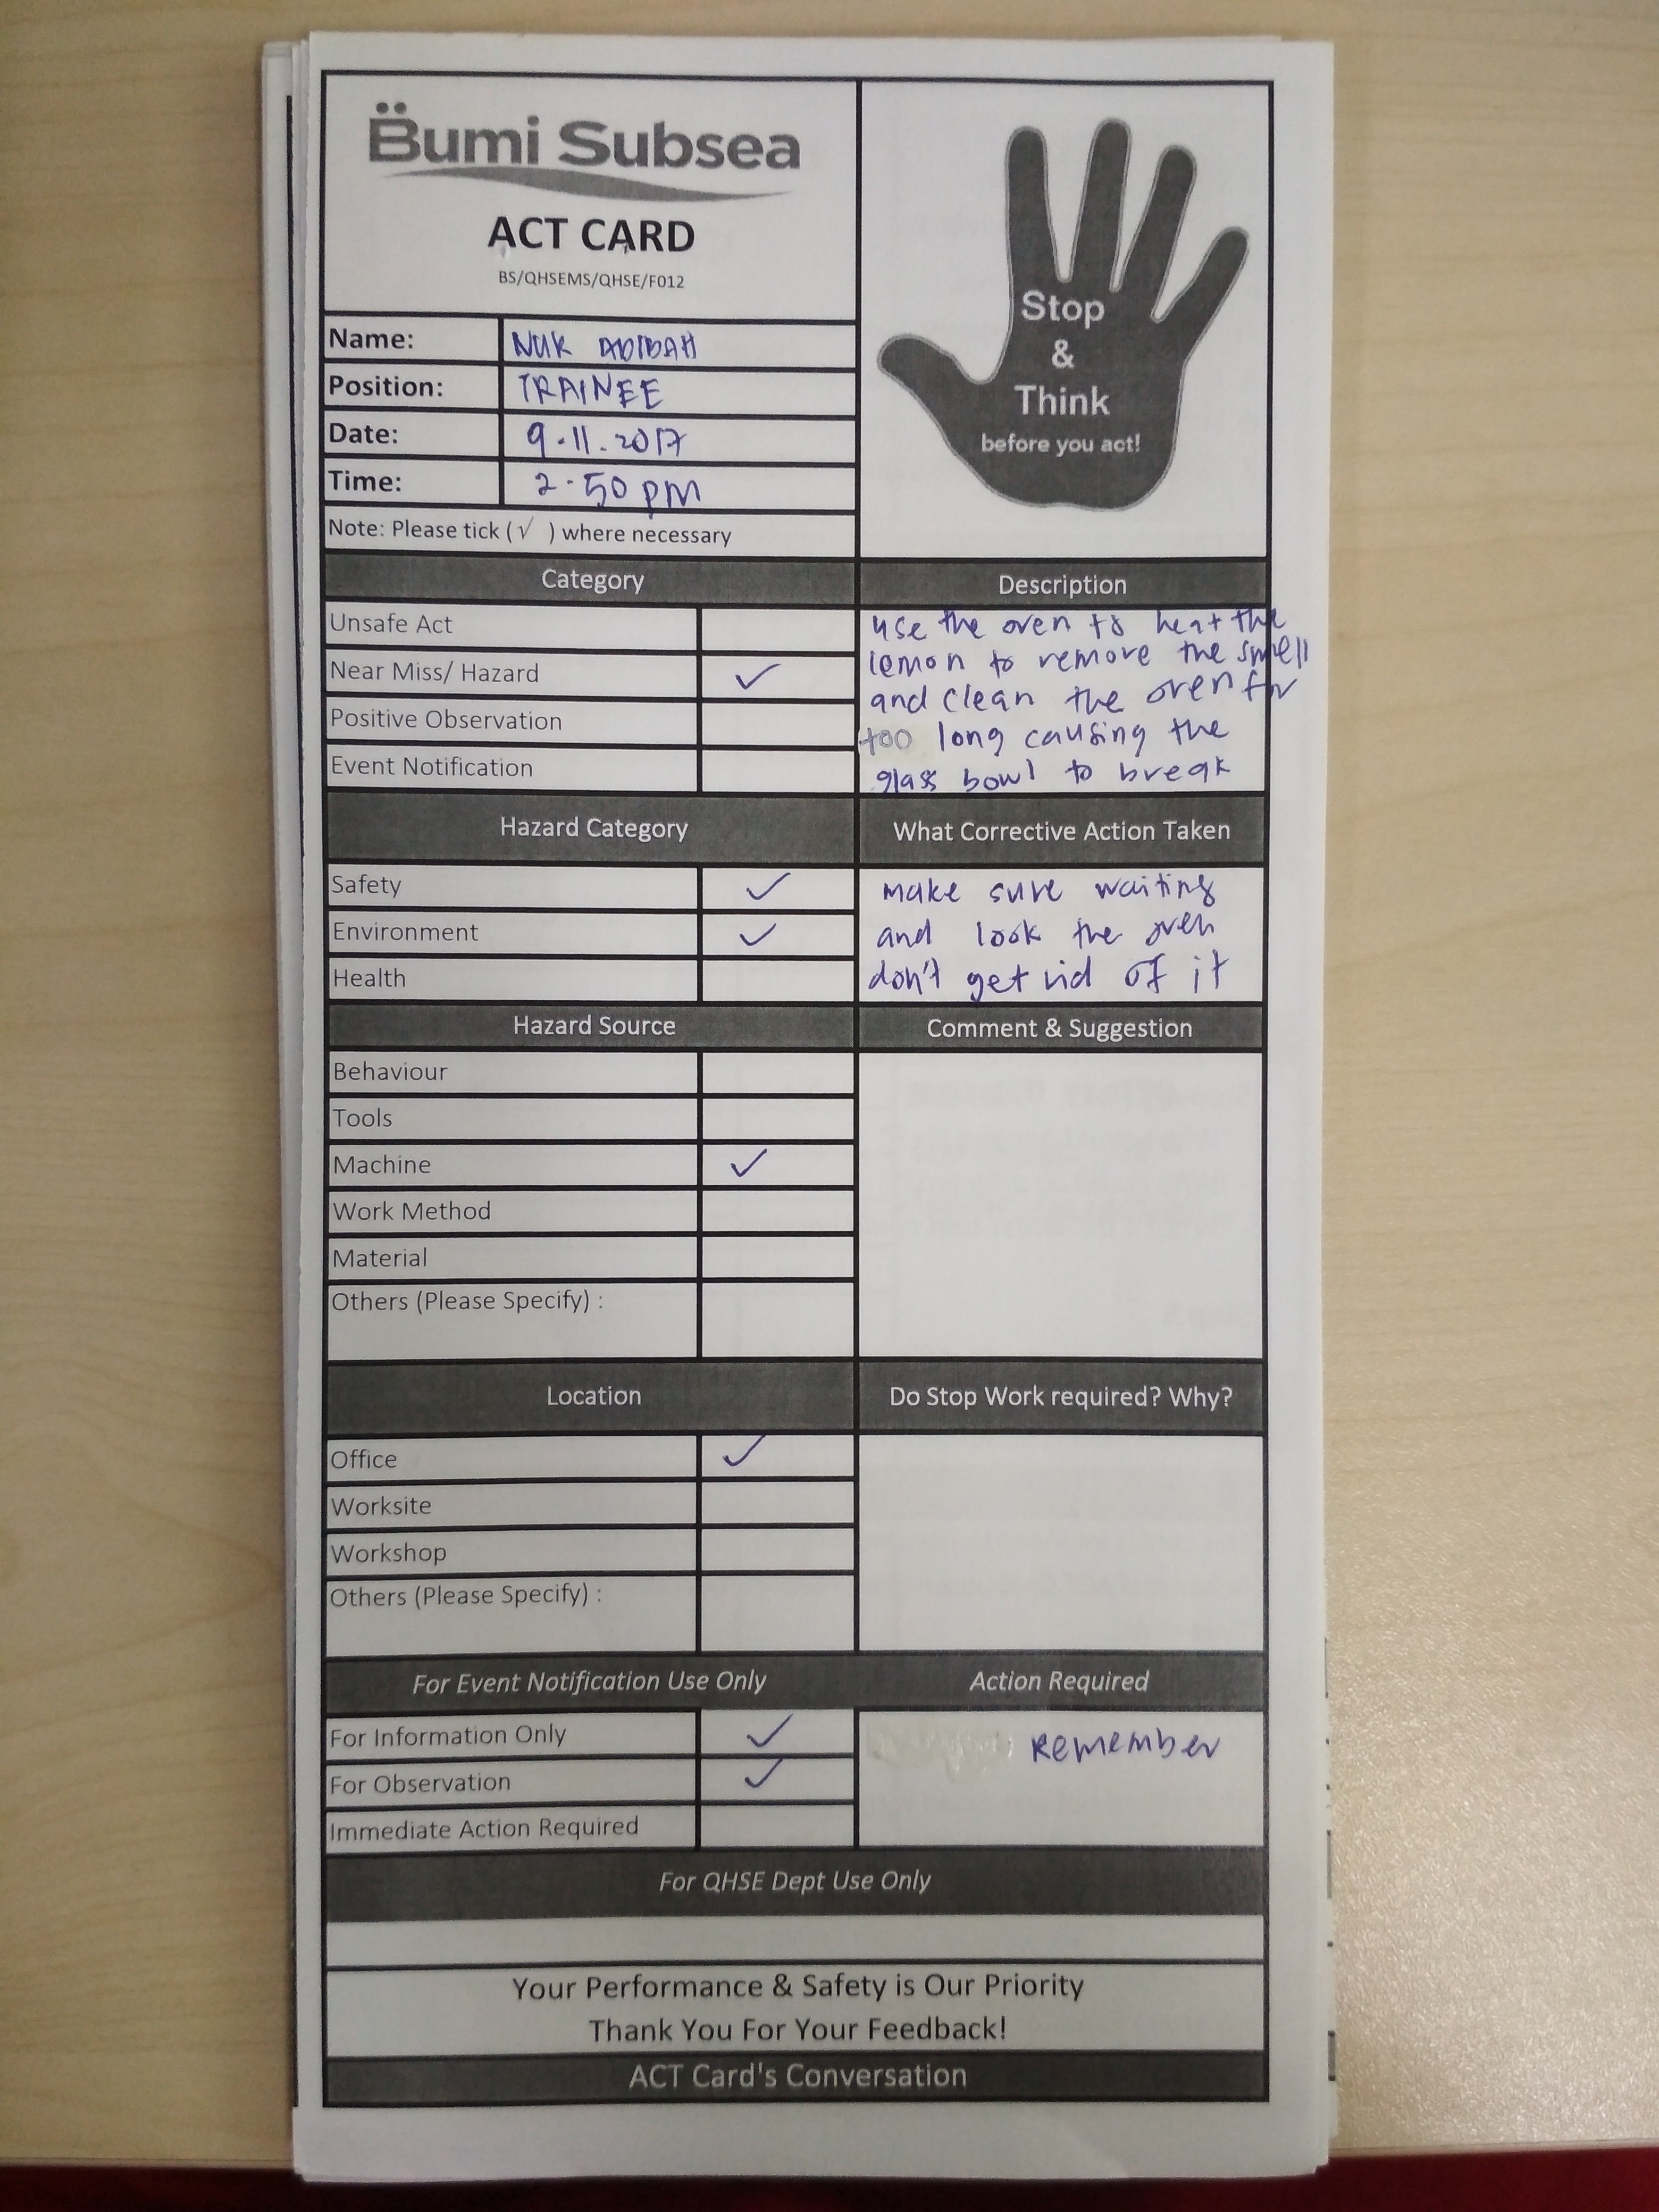 Bumi Subsea
ACT CARD
BS/QHSEMS/QHSE/F012
Stop
&
Think
before you act!
Name: NUR ADIBAH
Position: TRAINEE
Date: 9.11.2017
Time: 2.50 pm
Note: Please tick (√ ) where necessary
Category
Unsafe Act
Near Miss/ Hazard ✓
Positive Observation
Event Notification
Description
use the oven to heat the
lemon to remove the smell
and clean the oven for
too long causing the
glass bowl to break
Hazard Category
Safety ✓
Environment ✓
Health
What Corrective Action Taken
make sure waiting
and look the oven
don't get rid of it
Hazard Source
Behaviour
Tools
Machine ✓
Work Method
Material
Others (Please Specify) :
Comment & Suggestion
Location
Office ✓
Worksite
Workshop
Others (Please Specify) :
Do Stop Work required? Why?
For Event Notification Use Only
For Information Only ✓
For Observation ✓
Immediate Action Required
Action Required
Remember
For QHSE Dept Use Only
Your Performance & Safety is Our Priority
Thank You For Your Feedback!
ACT Card's Conversation